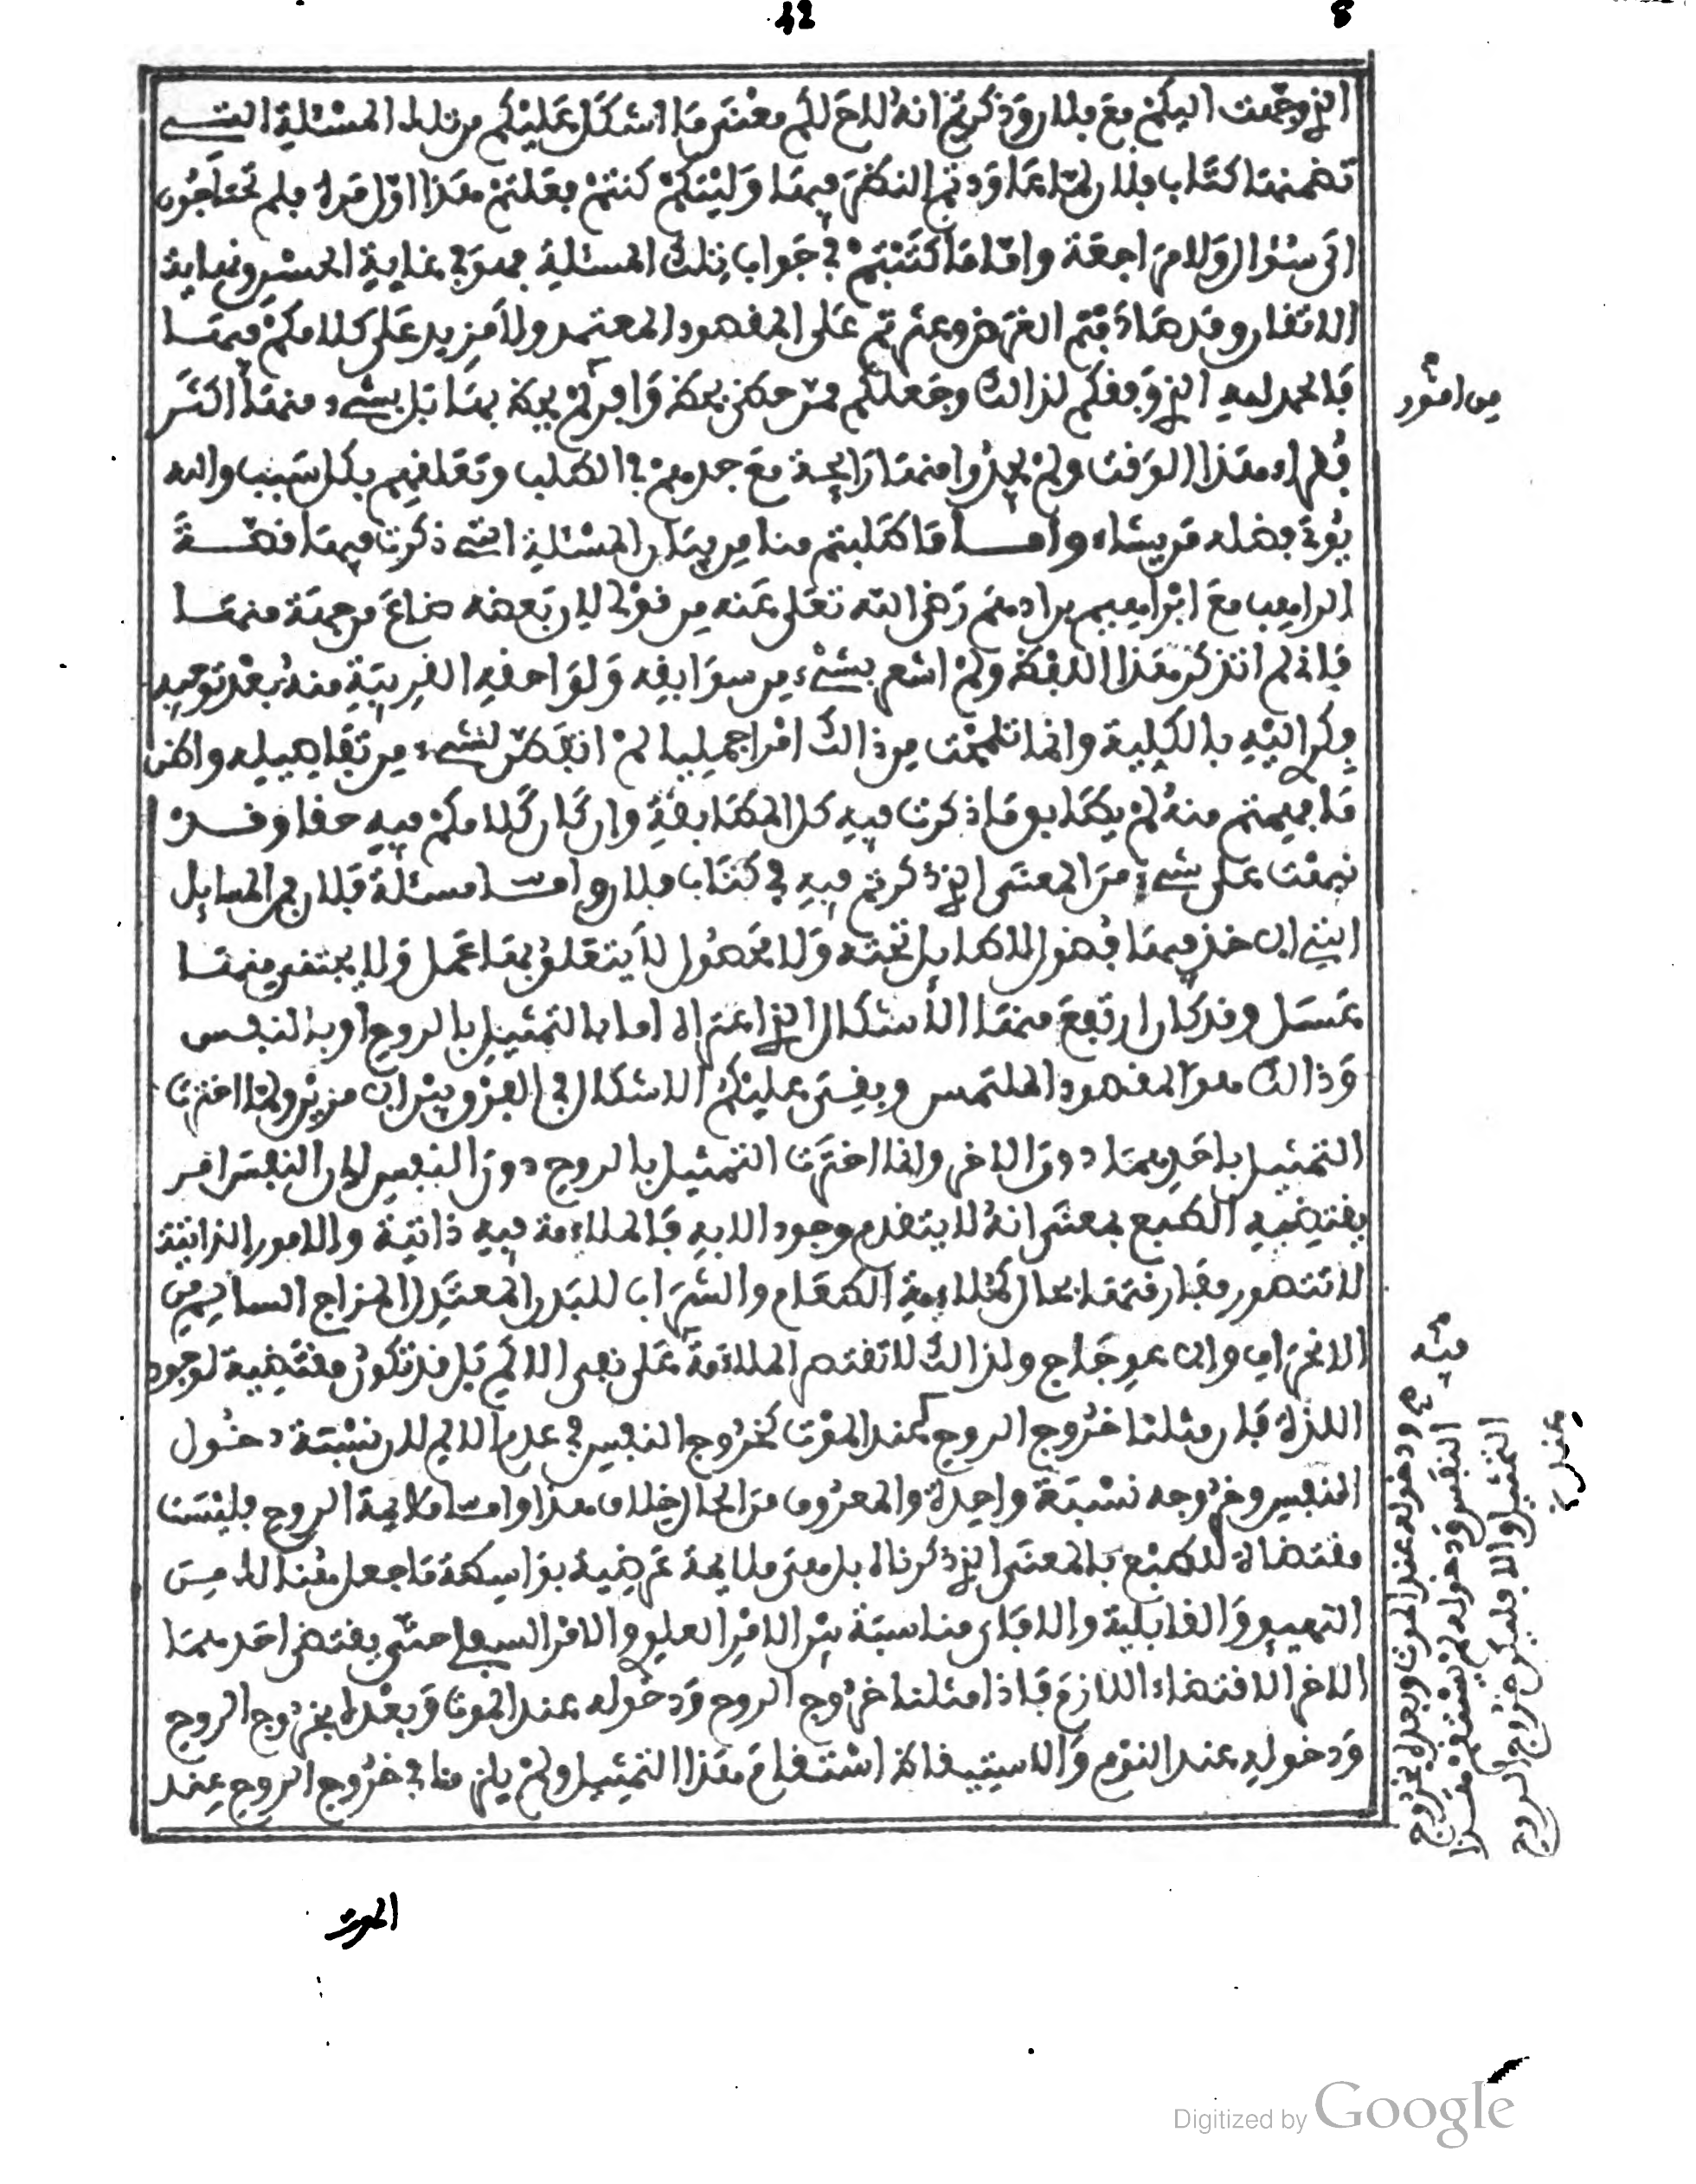 42
8
الذي وجهت اليكم مع فلان وذكرتم انه لاح لكم معنى ما اشكل عليكم من تلك المسئلة التى
تضمنها كتاب فلان لما عاودتم النظر فيها وليتكم كنتم فعلتم هذا اول مرة فلم تحتاجون
الى سؤال ولا مراجعة واما ما كتبتم في جواب تلك المسئلة فهو في غاية الحسن ونهاية
الاتقان وقد صادفتم الغرض وعثرتم على المقصود المعتمد ولا مزيد على كلامكم فيها
فالحمد لله الذي وفقكم لذالك وجعلكم ممن حظى بحظ وافر لم يحظ بها بل بشيء منها اكثر
فقراء هذا الوقت ولم يجدوا منها رايحة مع جدهم في الطلب وتعلقهم بكل سبب والله
يؤتي فضله من يشاء واما ما طلبتم منا من بيان المسئلة التى ذكرت فيها قصة
الراهب مع ابراهيم بن ادهم رضي الله تعلى عنه من قولي لان بعضه ضاع من جهة منها
فاني لم اتذكر هذا اللفظ ولم اشعر بشيء من سوابقه ولواحقه القريبة منه بعد توجيه
فكري اليه بالكلية وانما تلمحت من ذالك امرا جمليا لم اتفطن لشيء من تفاصيله واظن
ما فهمتم منه لم يطابق ما ذكرت فيه كل المطابقة وان كان كلامكم فيه حقا وقد
نبهت على شيء من المعنى الذي ذكرتم فيه في كتاب فلان واما مسئلة فلان فهي المسايل
التي اخذ فيها فضول لا طايل تحته ولا محصول لا يتعلق بها عمل ولا يجتنى منها
عسل وقد كان ارتفع منها الاشكال الذي اعتراه اما بالتمثيل بالروح او بالنفس
وذالك هو المقصود الملتمس وبقى عليكم الاشكال في الفرق بين الامرين ولم اخترت
التمثيل باحدهما دون الاخر وانما اخترت التمثيل بالروح دون النفس لان النفس امر
يقتضيه الطبع بمعنى انه لا يتقدم وجود الا به فالملاءمة فيه ذاتية والامور الذاتية
لا تتصور مفارقتها بحال كملاءمة الطعام والشراب للبدن المعتدل المزاج السالم من
الانحراف والاعوجاج ولذالك لا تقتصر الملاءمة على نفي الالم بل قد تكون مقتضية لوجود
اللذة فان مثلنا خروج الروح عند الموت كخروج النفس في عدم الالم لان نسبة دخول
النفس وخروجه نسبة واحدة والمعروف من الحال خلاف هذا واما ملايمة الروح فليست
مقتضاة للطبع بالمعنى الذي ذكرناه بل هي ملايمة عرضية بواسطة ما جعل هنالك من
التهيىء والقابلية والا فاي مناسبة بين الامر العلوي والامر السفلي حتى يقتضي احدهما
الاخر الاقتضاء اللازم فاذا مثلنا خروج الروح ودخوله عند الموت وبعده بخروج الروح
ودخوله عند النوم والاستيقاظ استقام هذا التمثيل ولم يلزمنا في خروج الروح عند
من امور
منه
ودخوله عند الموت وبعده بخروج
النفس ودخوله لم يستقم هذا
التمثيل والا فليكن خروج الروح
عند
الموت
Digitized by Google